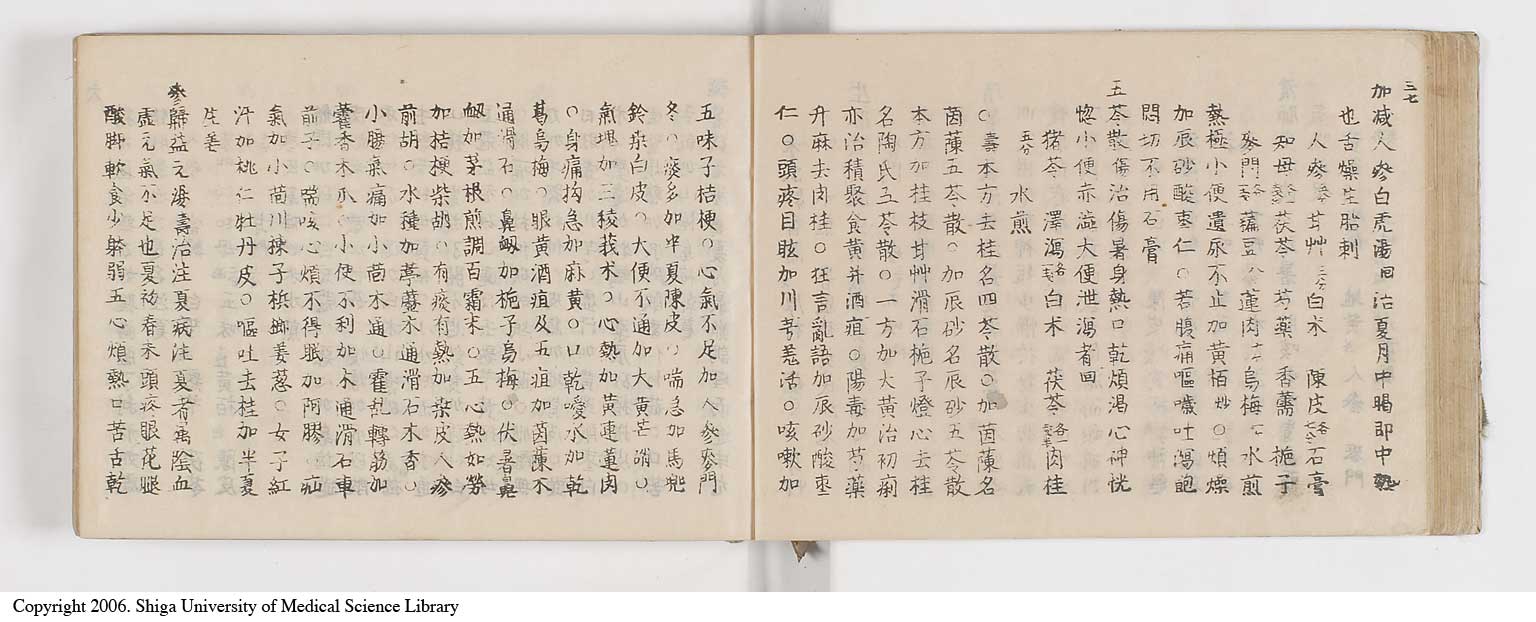 三七
加减人參白虎湯 回 治夏月中暍即中熱
也舌燥生胎刺
人參 甘艸 三分 白朮 陳皮 各七分 石膏
知母 茯苓 芍藥 香薷 梔子
麥門 各五分 藊豆 八分 蓮肉 烏梅 一ケ 水煎
熱極小便遺尿不止加黃栢 炒 ○煩燥
加辰砂酸枣仁○若腹痛嘔噦吐瀉飽
悶切不用石膏
五苓散 傷 治傷暑身熱口乾煩渴心神恍
惚小便赤澁大便泄瀉者 回
猪苓 澤瀉 白朮 茯苓 肉桂
五分 水煎
○壽 本方去桂名四苓散○加茵蔯名
茵蔯五苓散○加辰砂名辰砂五苓散
本方加桂枝甘艸滑石梔子燈心去桂
名陶氏五苓散○一方加大黃治初痢
亦治積聚食黃并酒疸○陽毒加芍藥
升麻去肉桂○狂言亂語加辰砂酸枣
仁○頭疼目眩加川芎羗活○咳嗽加
五味子桔梗○心氣不足加人參麥門
冬○痰多加半夏陳皮○喘急加馬兜
鈴桒白皮○大便不通加大黃芒硝○
氣塊加三稜莪朮○心熱加黃連蓮肉
○身痛拘急加麻黃○口乾噯水加乾
葛烏梅○眼黃酒疸及五疸加茵蔯木
通滑石○鼻衂加梔子烏梅○伏暑鼻
衂加茅根煎調百霜末○五心熱如勞
加桔梗柴胡○有痰有熱加桒皮人參
前胡○水腫加葶藶木通滑石木香○
小腸氣痛加小茴木通○霍乱轉筋加
藿香木瓜○小便不利加木通滑石車
前子○喘咳心煩不得眠加阿膠○疝
氣加小茴川楝子梹榔姜葱○女子紅
汗加桃仁牡丹皮○嘔吐去桂加半夏
生姜
參歸益元湯 壽 治注夏病注夏者屬陰血
虛元氣不足也夏初春末頭疼眼花腿
酸脚軟食少躰弱五心煩熱口苦舌乾
Copyright 2006. Shiga University of Medical Science Library